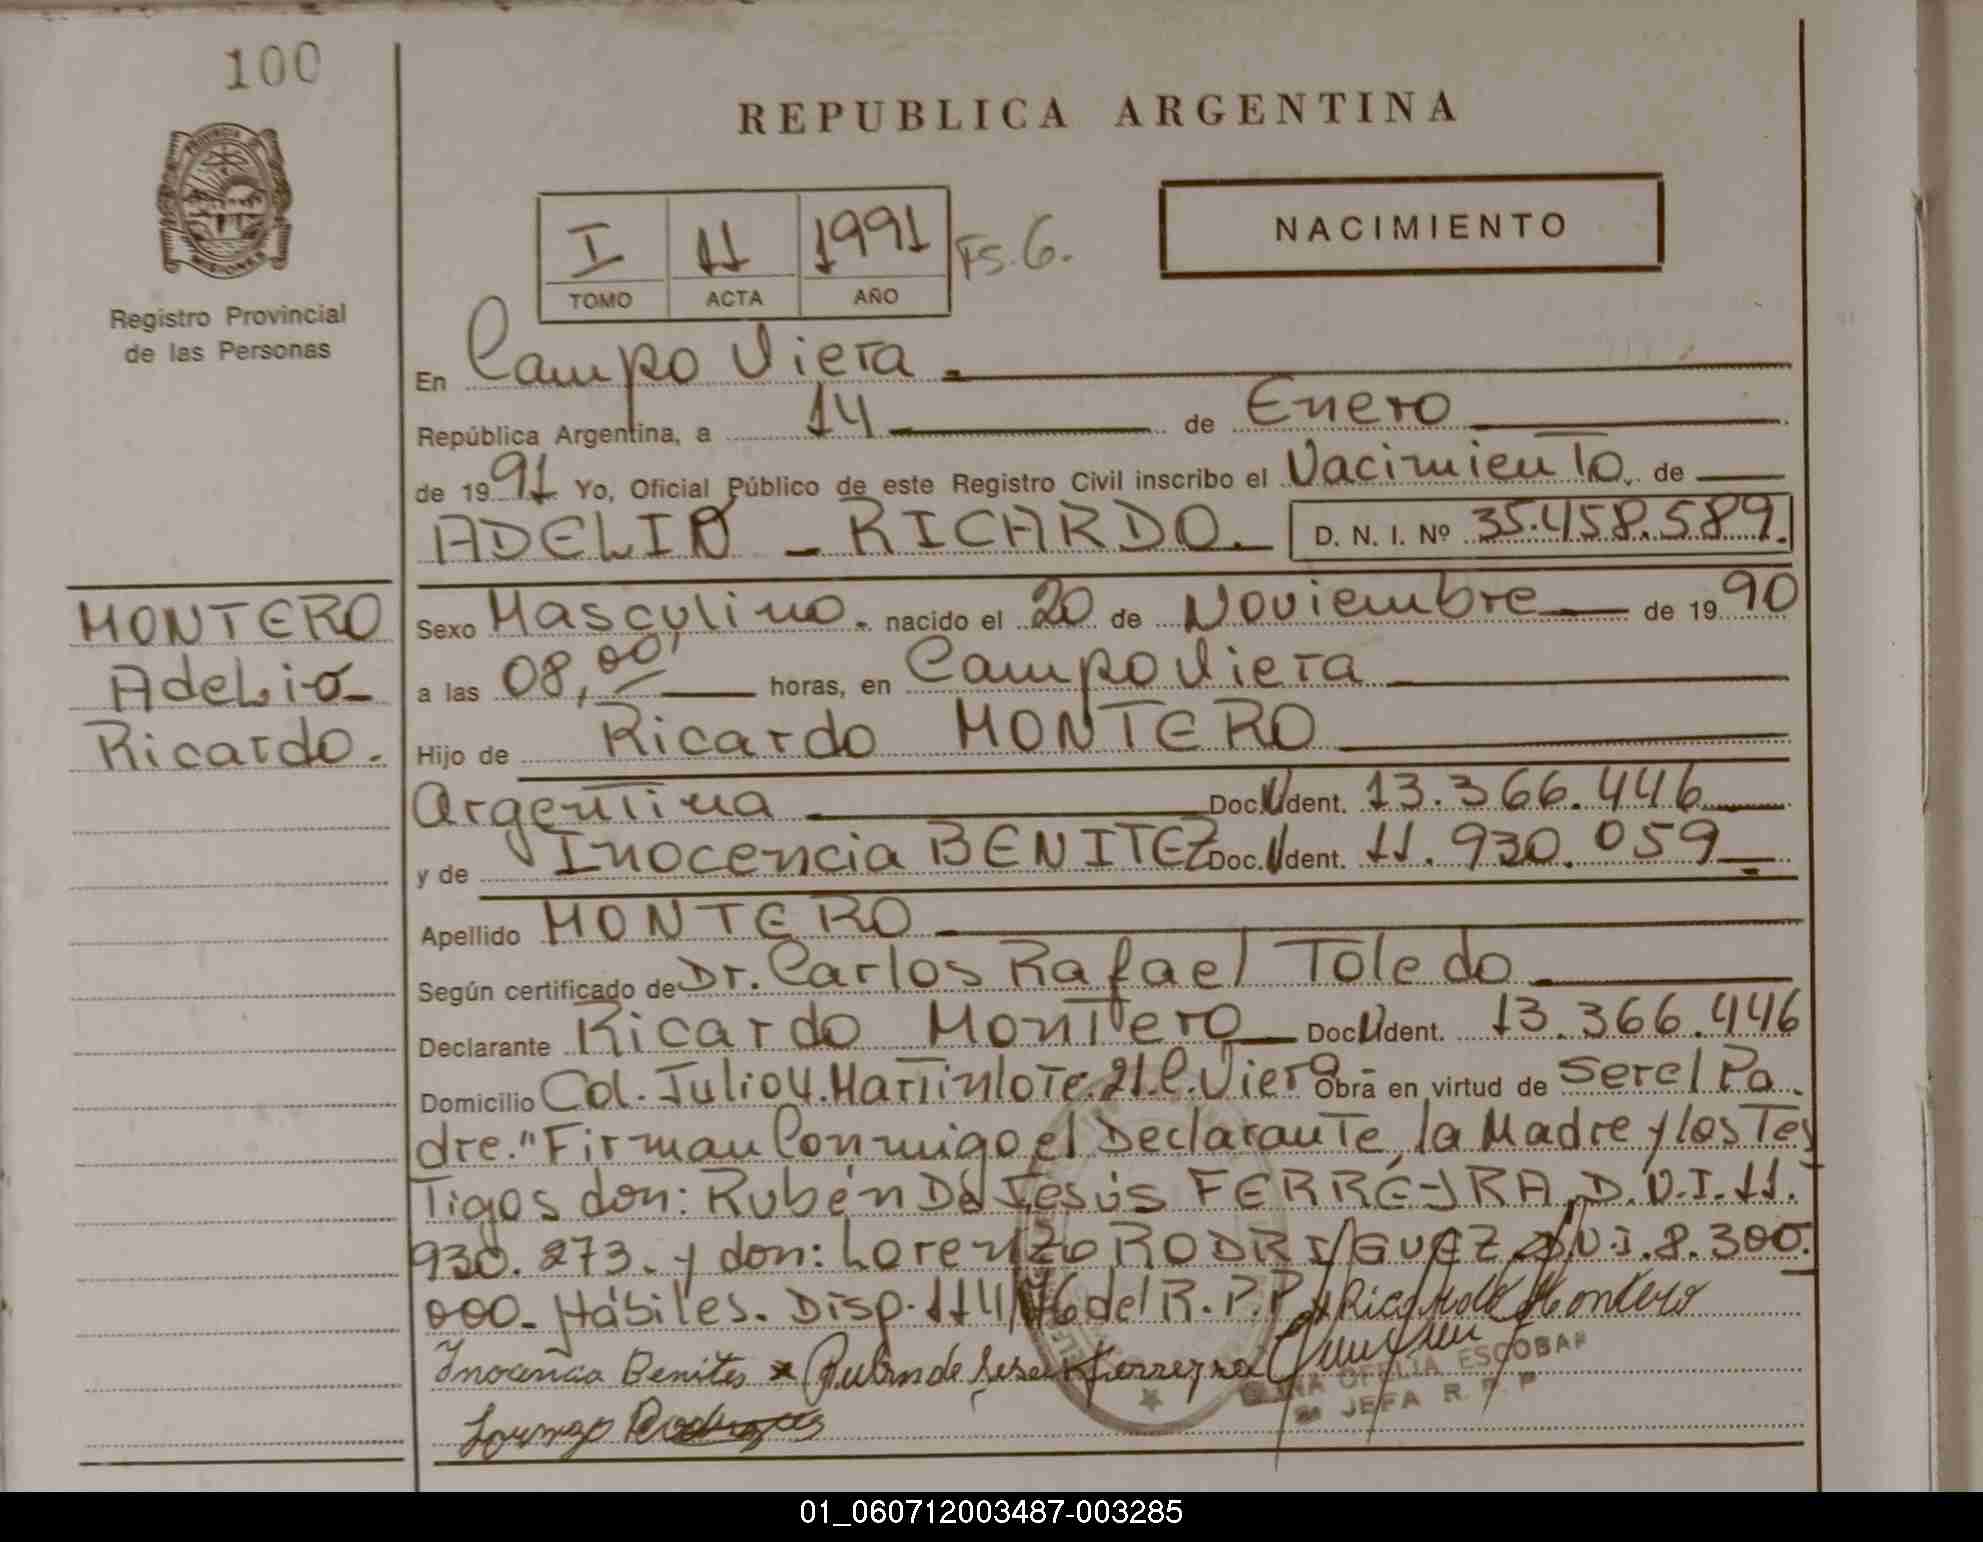 100
REPUBLICA ARGENTINA
PROVINCIA DE
MISIONES
Registro Provincial
de las Personas
I 11 1991 Fs. 6.
TOMO ACTA AÑO
NACIMIENTO
En Campo Viera
República Argentina, a 14 de Enero
de 1991 Yo, Oficial Público de este Registro Civil inscribo el Nacimiento de
ADELIO - RICARDO. D. N. I. Nº 35.458.589.
MONTERO
Adelio
Ricardo.
Sexo Masculino. nacido el 20 de Noviembre de 1990
a las 08,00 horas, en Campo Viera
Hijo de Ricardo MONTERO
Argentina Doc. Ident. 13.366.446
y de Inocencia BENITEZ Doc. Ident. 11.930.059
Apellido MONTERO
Según certificado de Dr. Carlos Rafael Toledo
Declarante Ricardo Montero Doc. Ident. 13.366.446
Domicilio Col. Julio U. Martin lote. 21. C. Viera Obra en virtud de Ser el Pa
dre." Firman Conmigo el Declarante, la Madre y los Tes
Tigos don: Rubén De Jesús FERREYRA, D.N.I. 11.
930.273. y don: Lorenzo RODRIGUEZ D.N.I. 8.300.
000. Hábiles. Disp. 114/76 del R.P.P. Ricardo Montero
Inocencia Benites x Ruben de Jesus Ferreyra
OFELIA ESCOBAR
JEFA R. P. P.
Lorenzo Rodriguez
01_060712003487-003285